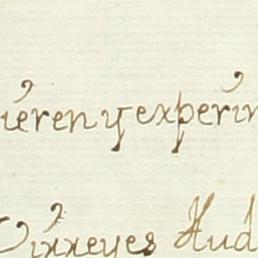 ieren y experim
Virreyes Aud